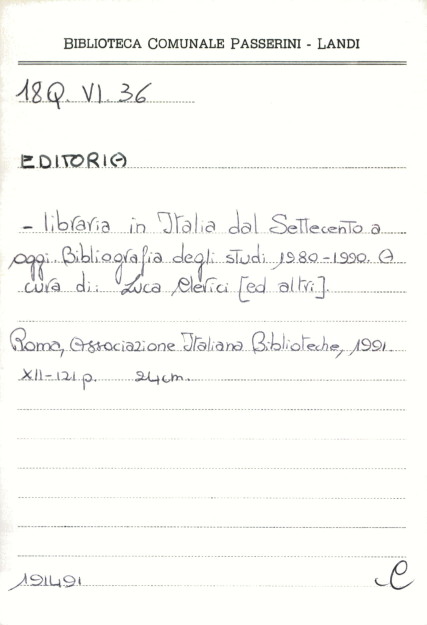 BIBLIOTECA COMUNALE PASSERINI - LANDI
18Q. VI. 36
EDITORIA
- libraria in Italia dal Settecento a
oggi. Bibliografia degli studi 1980-1990. A
cura di: Luca Clerici [ed altri].
Roma, Associazione Italiana Biblioteche, 1991.
XII-121 p. 24cm.
191491 C